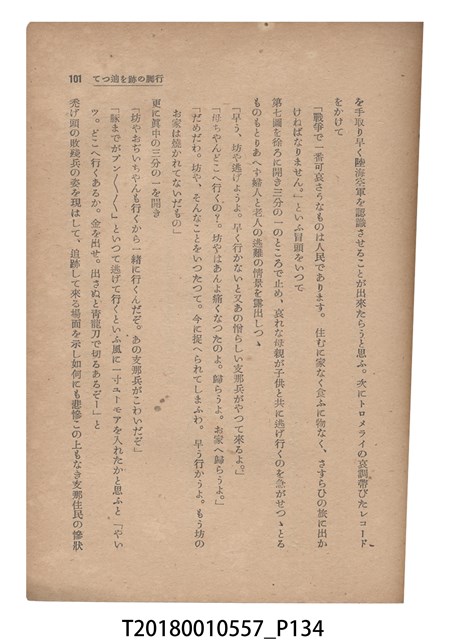 101 てつ追を跡の脚行
を手取り早く陸海空軍を認識させることが出来たらうと思ふ。次にトロメライの哀調帯びたレコード
をかけて
「戦争で一番可哀さうなものは人民であります。住むに家なく食ふに物なく、さすらひの旅に出か
けねばなりません。」といふ冒頭をいつで
第七圖を徐ろに開き三分の一のところで止め、哀れな母親が子供と共に逃げ行くのを急がせつゝとる
ものもとりあへず婦人と老人の逃難の情景を露出しつゝ
「早う、坊や逃げようよ。早く行かないと又あの憎らしい支那兵がやつて來るよ。」
「母ちやんどこへ行くの?。坊やはあんよ痛くなつたのよ。歸らうよ。お家へ歸らうよ。」
「だめだわ。坊や、そんなことをいつたつて。今に捉へられてしまふわ。早う行かうよ。もう坊の
お家は燒かれてないだもの」
更に眞中の三分の一を開き
「坊やおぢいちやんも行くから一緒に行くんだぞ。あの支那兵がこわいだぞ」
「豚までがブン〳〵〳〵」といつて逃げて行くといふ風に一寸ユーモアを入れたかと思ふと「やい
ツ。どこへ行くあるか。金を出せ。出さぬと青龍刀で切るあるぞー」と
禿げ頭の敗殘兵の姿を現はして、追跡して來る場面を示し如何にも悲慘この上もなき支那住民の慘狀
T20180010557_P134